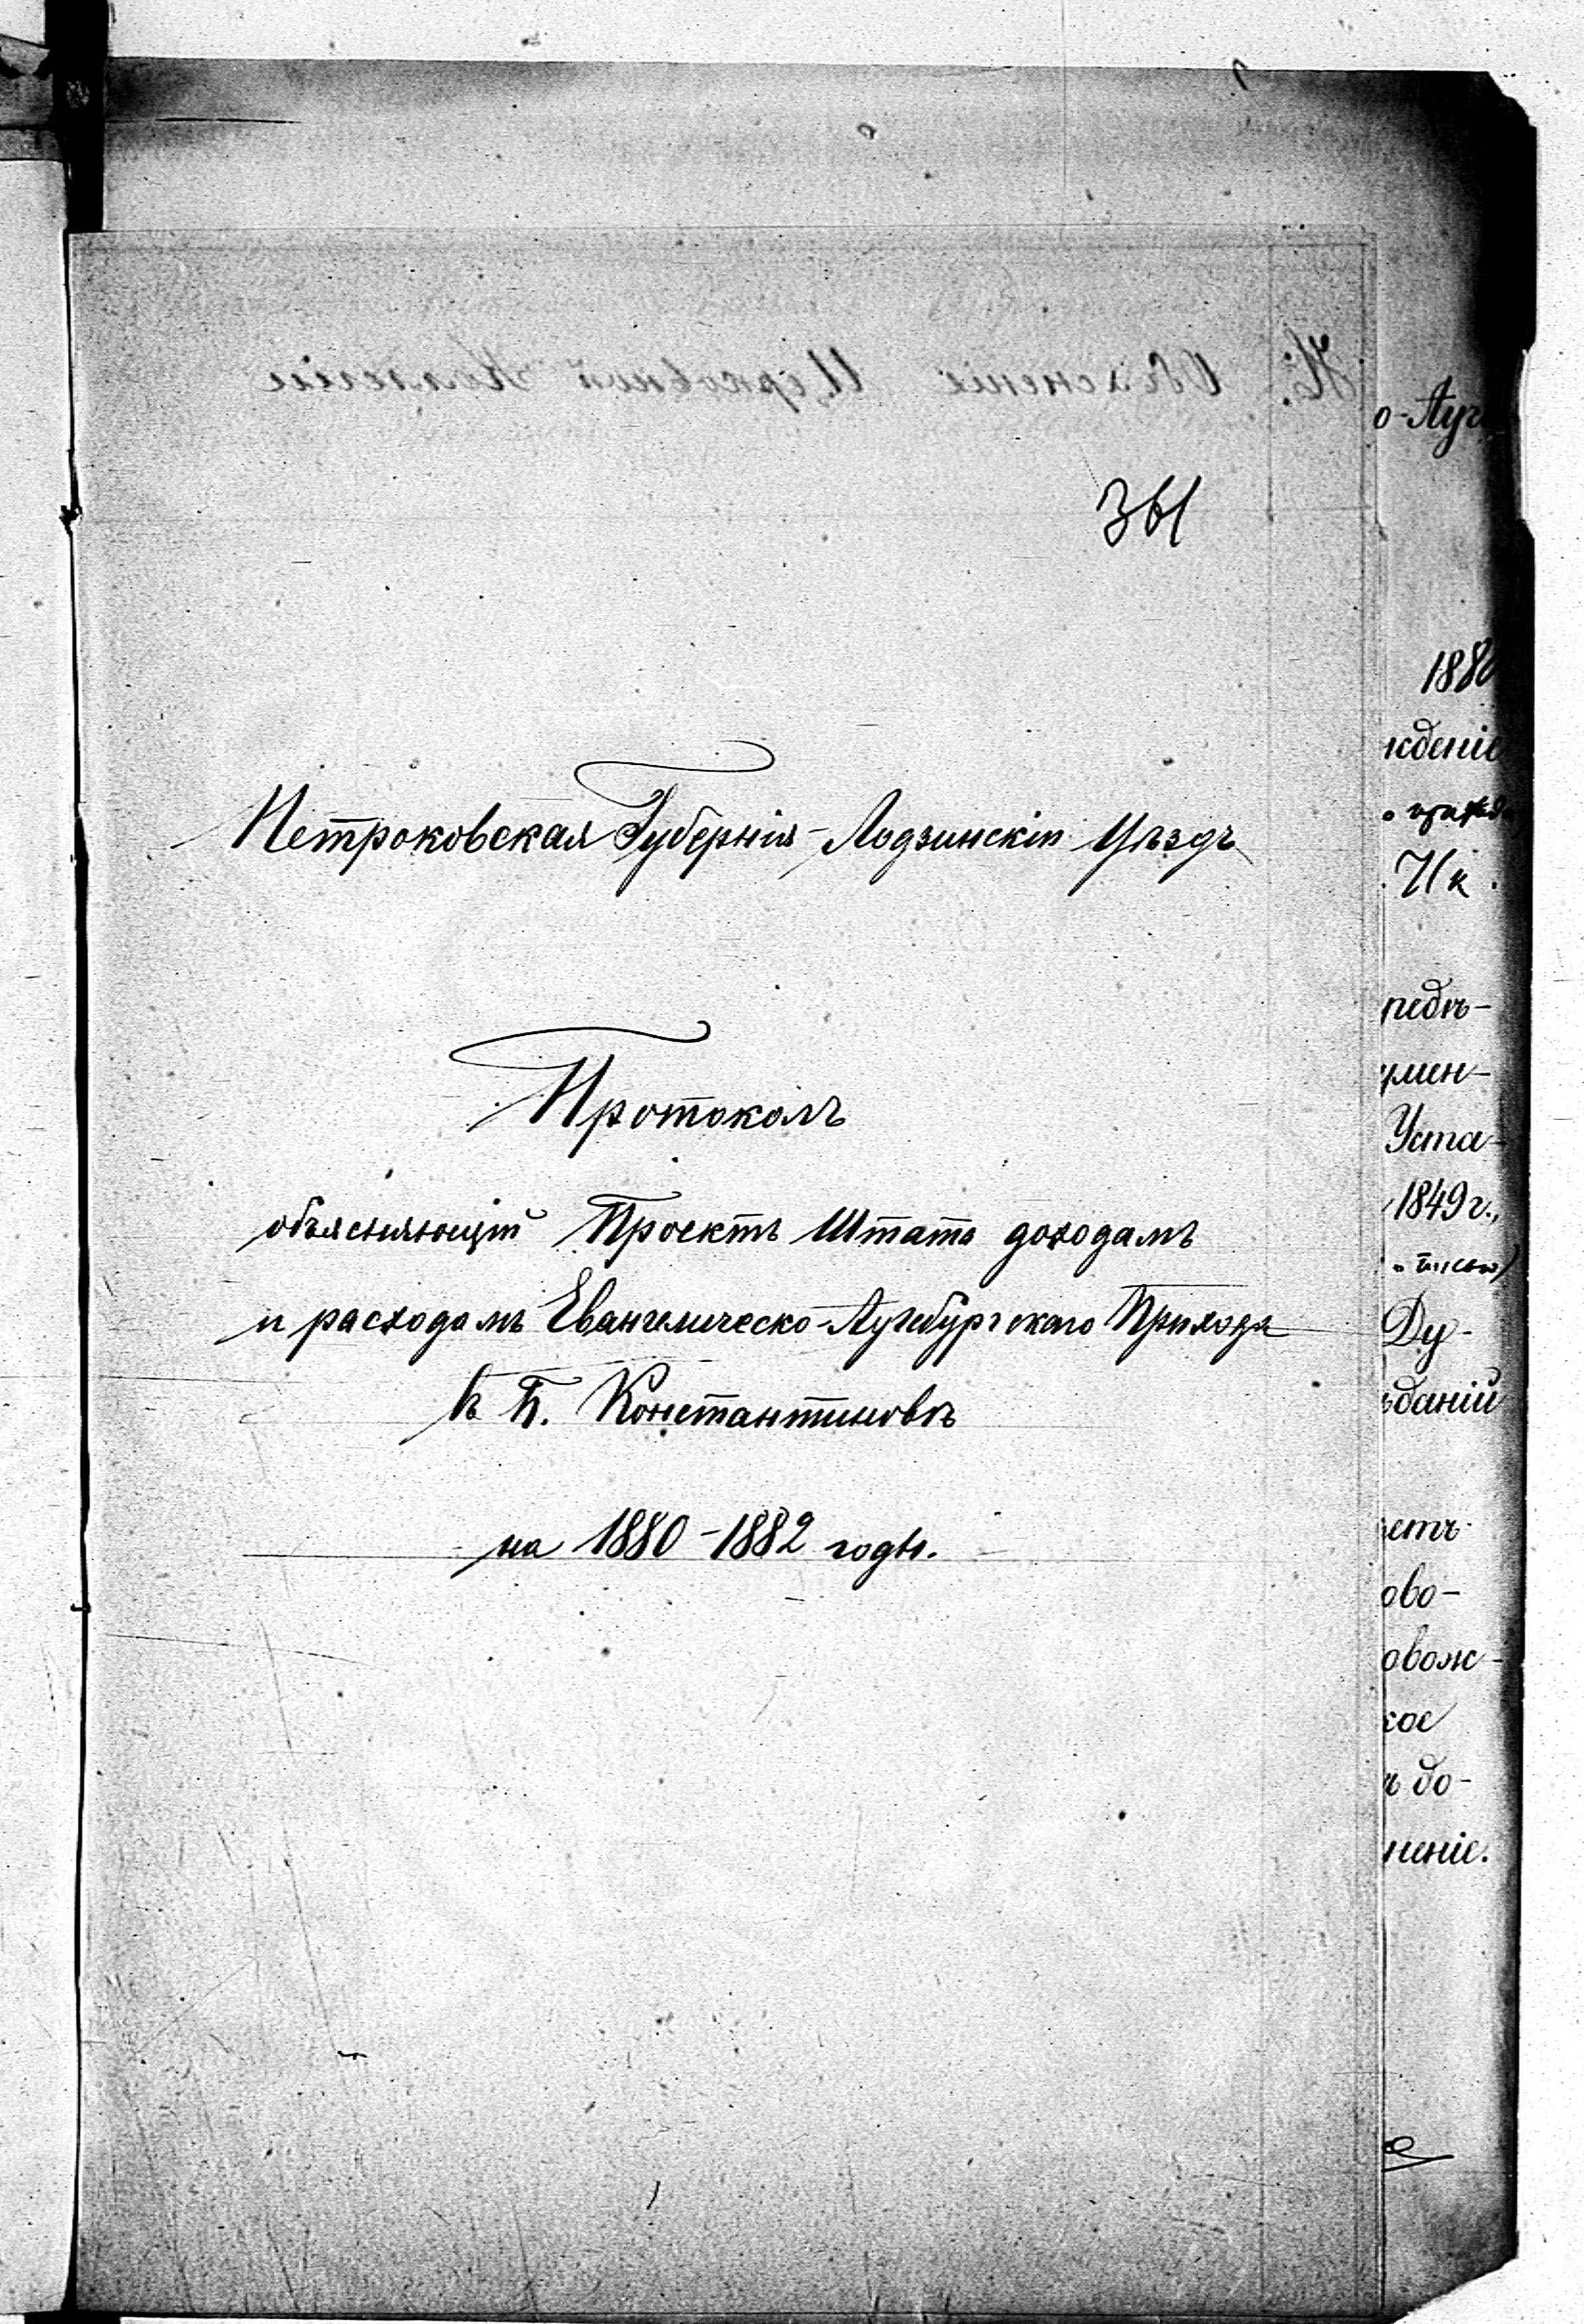 361
Петроковская Губернія - Лодзинскій Уѣздъ
Протоколъ
объясняющій Проектъ Штата доходамъ
и расходамъ Евангелическо-Аугсбургскаго Прихода
въ П. Константиновѣ
на 1880-1882 годы.
о-Ауг
188
жденіе
редъ-
умен-
Уста-
1849 г.,
Ду-
ѣданій
етъ
ово-
овож-
кое
ъ до-
неніе.